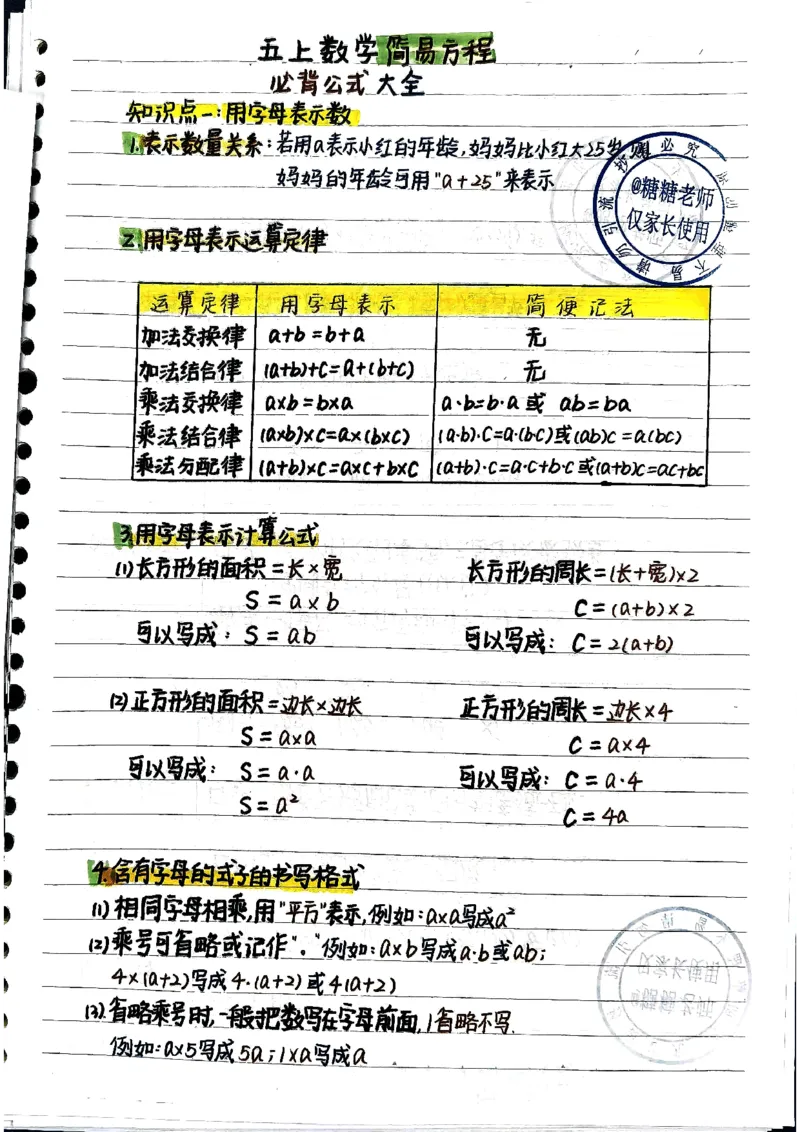 五上数学简易方程
必背公式大全
知识点一:用字母表示数
1.表示数量关系:若用a表示小红的年龄,妈妈比小红大25岁,则
妈妈的年龄可用"a+25"来表示
@糖糖老师
仅家长使用
2.用字母表示运算定律
运算定律 用字母表示 简便记法
加法交换律 a+b=b+a 无
加法结合律 (a+b)+c=a+(b+c) 无
乘法交换律 a×b=b×a a·b=b·a或 ab=ba
乘法结合律 (a×b)×c=a×(b×c) (a·b)·c=a·(b·c)或(ab)c=a(bc)
乘法分配律 (a+b)×c=a×c+b×c (a+b)·c=a·c+b·c或(a+b)c=ac+bc
3.用字母表示计算公式
(1)长方形的面积=长×宽 长方形的周长=(长+宽)×2
S=a×b C=(a+b)×2
可以写成:S=ab 可以写成:C=2(a+b)
(2)正方形的面积=边长×边长 正方形的周长=边长×4
S=a×a C=a×4
可以写成:S=a·a 可以写成:C=a·4
S=a² C=4a
4.含有字母的式子的书写格式
(1)相同字母相乘,用"平方"表示,例如:a×a写成a²
(2)乘号可省略或记作"·"例如:a×b写成a·b或ab;
4×(a+2)写成4·(a+2)或4(a+2)
(3)省略乘号时,一般把数写在字母前面,1省略不写.
例如:a×5写成5a;1×a写成a